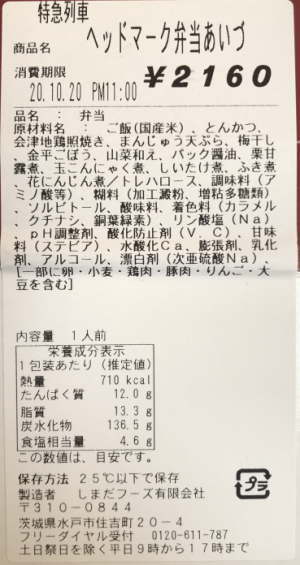 特急列車
商品名 ヘッドマーク弁当あいづ
消費期限
20.10.20 PM11:00 ¥2160
品名 : 弁当
原材料名 : ご飯(国産米)、とんかつ、
会津地鶏照焼き、まんじゅう天ぷら、梅干し
、金平ごぼう、山菜和え、パック醤油、栗甘
露煮、玉こんにゃく煮、しいたけ煮、ふき煮
、花にんじん煮/トレハロース、調味料(ア
ミノ酸等)、糊料(加工澱粉、増粘多糖類)
、ソルビトール、酸味料、着色料(カラメル
、クチナシ、銅葉緑素)、リン酸塩(Na)
、pH調整剤、酸化防止剤(V.C)、甘味
料(ステビア)、水酸化Ca、膨張剤、乳化
剤、アルコール、漂白剤(次亜硫酸Na)、
[一部に卵・小麦・鶏肉・豚肉・りんご・大
豆を含む]
内容量 1人前
栄養成分表示
1包装あたり(推定値)
熱量 710 kcal
たんぱく質 12.0 g
脂質 13.3 g
炭水化物 136.5 g
食塩相当量 4.6 g
この数値は、目安です。
保存方法 25℃以下で保存
製造者 しまだフーズ有限会社
〒310-0844
茨城県水戸市住吉町20-4
フリーダイヤル受付 0120-611-787
土日祭日を除く平日9時から17時まで
プラ